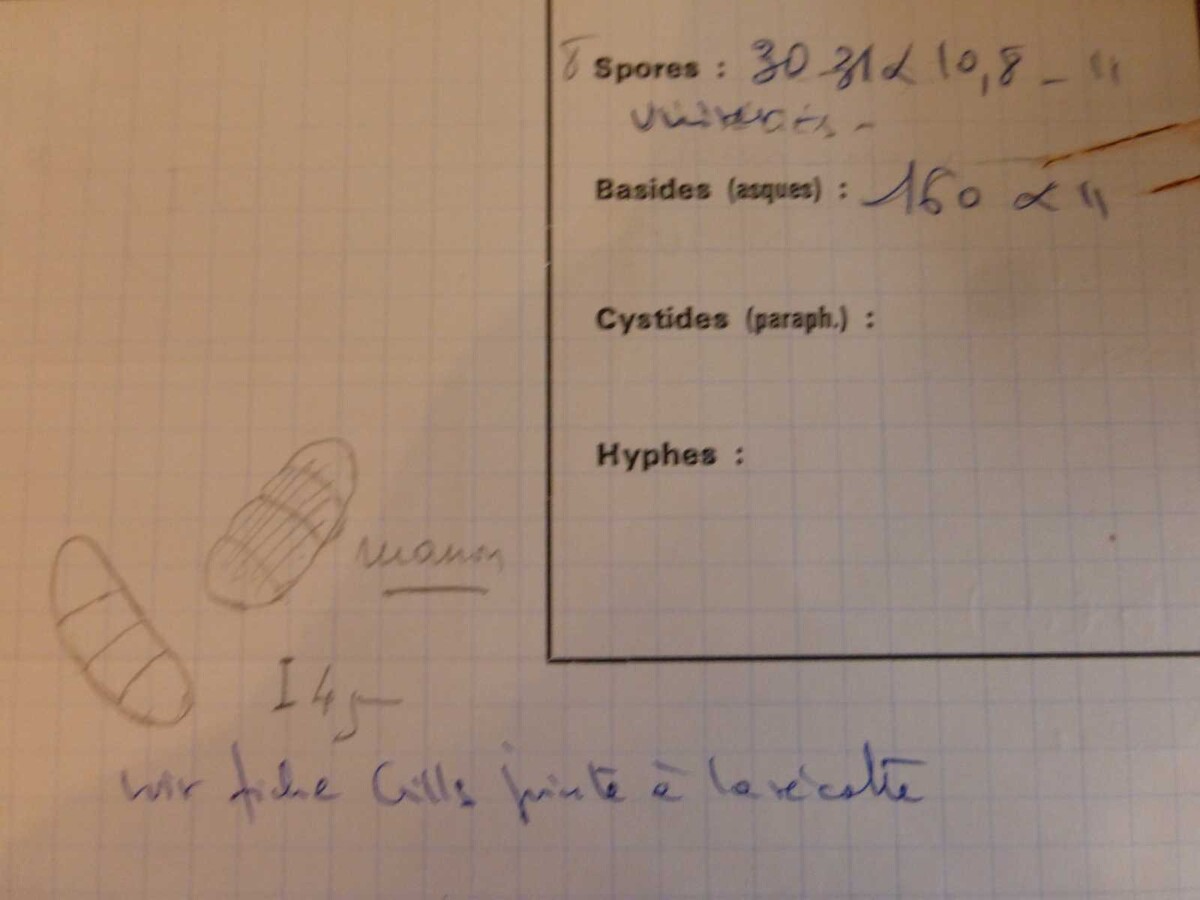 8 Spores : 30 31 x 10,8 - 11
Basides (asques) : 160 x 11
Cystides (paraph.) :
Hyphes :
marron
I 4
voir fiche Gilles jointe à la récolte